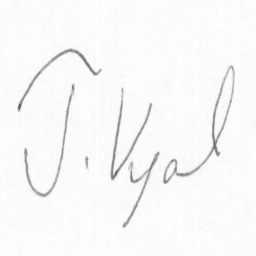 J. Vyal